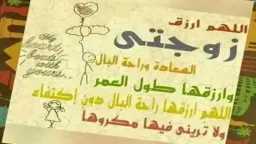 اللهم ارزق
زوجتى
السعادة وراحة البال
وارزقها طول العمر
اللهم ارزقها راحة البال دون إكتفاء
ولا ترينى فيها مكروها
my
heart
beats
with
yours..